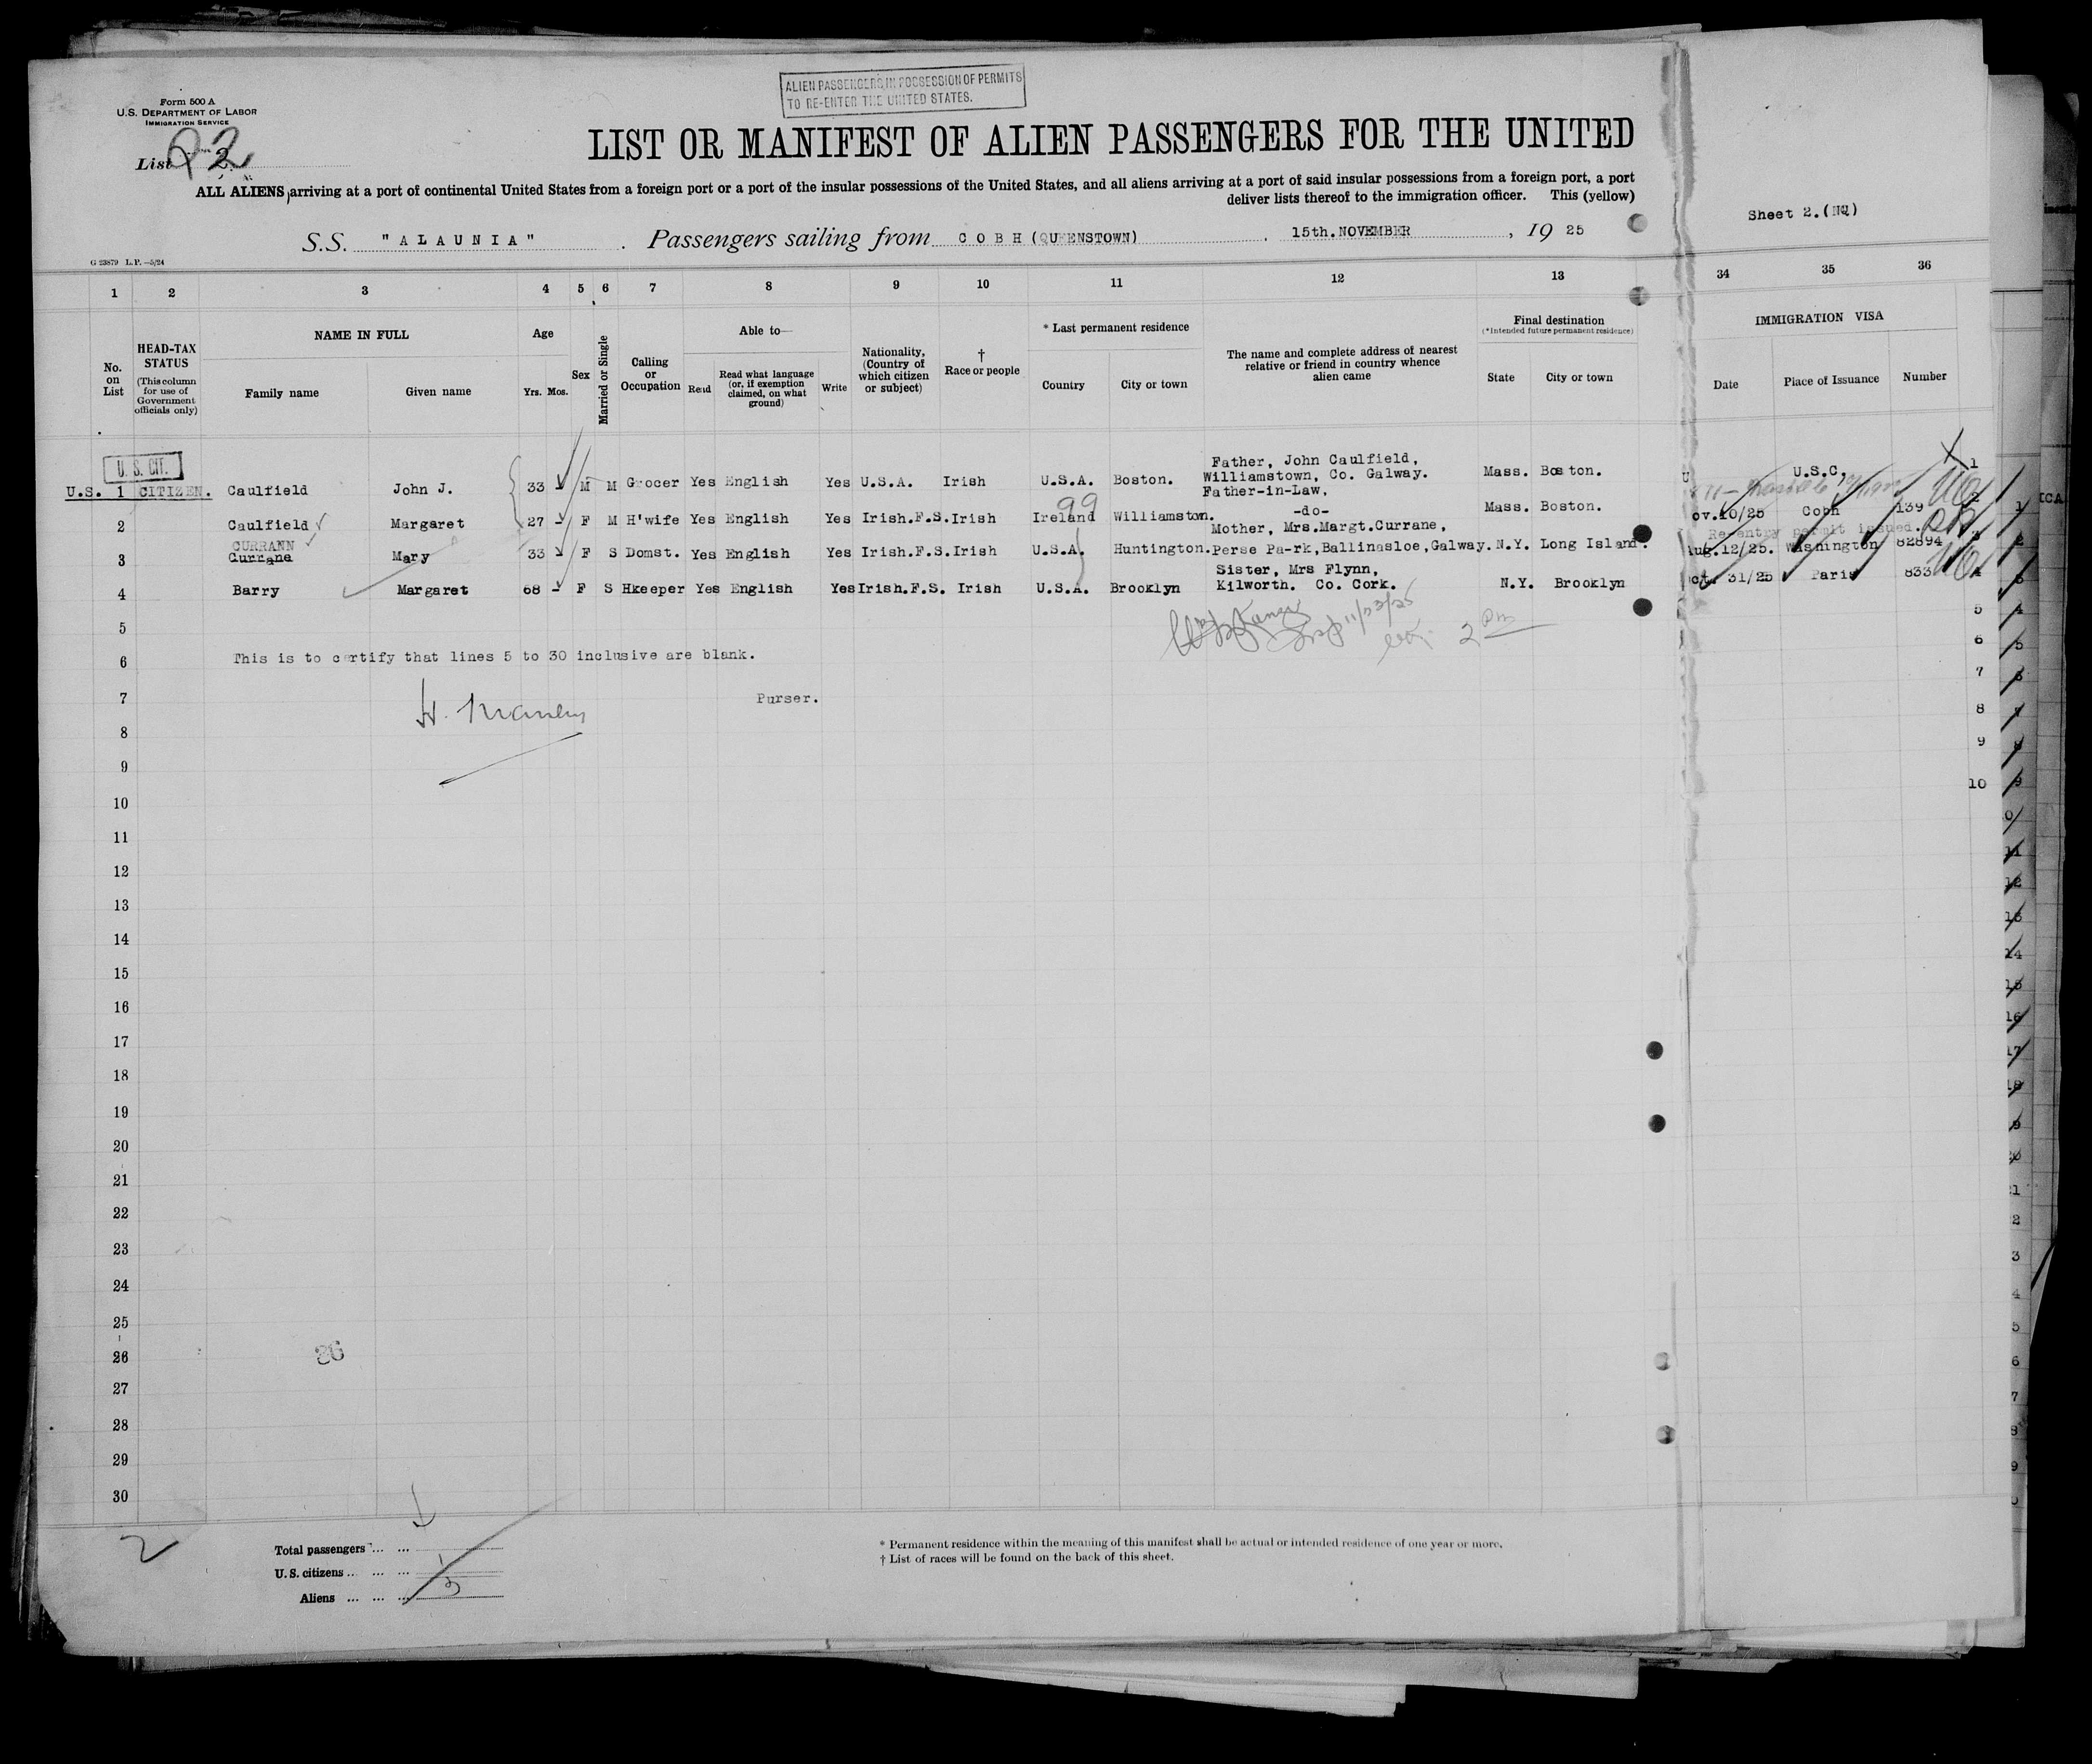 ALIEN PASSENGERS IN POSSESSION OF PERMITS
TO RE-ENTER THE UNITED STATES.
Form 500 A
U.S. DEPARTMENT OF LABOR
IMMIGRATION SERVICE
List 2
LIST OR MANIFEST OF ALIEN PASSENGERS FOR THE UNITED
ALL ALIENS arriving at a port of continental United States from a foreign port or a port of the insular possessions of the United States, and all aliens arriving at a port of said insular possessions from a foreign port, a port
deliver lists thereof to the immigration officer. This (yellow)
Sheet 2.(NQ)
S.S. "ALAUNIA" . Passengers sailing from COBH (QUEENSTOWN) . 15th.NOVEMBER , 19 25
G 23879 L.P.—5/24
1 2 3 4 5 6 7 8 9 10 11 12 13 34 35 36
No. on List
HEAD-TAX STATUS (This column for use of Government officials only)
NAME IN FULL
Family name Given name
Age
Yrs. Mos.
Sex
Married or Single
Calling or Occupation
Able to—
Read Read what language (or, if exemption claimed, on what ground) Write
Nationality, (Country of which citizen or subject)
† Race or people
* Last permanent residence
Country City or town
The name and complete address of nearest relative or friend in country whence alien came
Final destination
(*Intended future permanent residence)
State City or town
IMMIGRATION VISA
Date Place of Issuance Number
U. S. CIT.
U.S. 1 CITIZEN. Caulfield John J. 33 M M Grocer Yes English Yes U.S.A. Irish U.S.A. Boston. Father, John Caulfield, Williamstown, Co. Galway. Mass. Boston. U.S.C, 1
2 Caulfield Margaret 27 F M H'wife Yes English Yes Irish.F.S. Irish 99 Ireland Williamston. Father-in-Law, -do- Mass. Boston. ov.10/25 Cobh 139 2
Re-entry permit issued.
3 CURRANN Currane Mary 33 F S Domst. Yes English Yes Irish.F.S. Irish U.S.A. Huntington. Mother, Mrs.Margt.Currane, Perse Pa-rk,Ballinasloe,Galway. N.Y. Long Island. Aug.12/25. Washington 82894 3
4 Barry Margaret 68 F S Hkeeper Yes English Yes Irish.F.S. Irish U.S.A. Brooklyn Sister, Mrs Flynn, Kilworth. Co. Cork. N.Y. Brooklyn oct. 31/25 Paris 833 4
11/23/25
2 pm
5 5
6 This is to certify that lines 5 to 30 inclusive are blank. 6
7 Purser. 7
8 8
9 9
10 10
11
12
13
14
15
16
17
18
19
20
21
22
23
24
25
26
27
28
29
30
26
2
Total passengers ... ...
U. S. citizens ... ... ... 1
Aliens ... ... ... 3
* Permanent residence within the meaning of this manifest shall be actual or intended residence of one year or more.
† List of races will be found on the back of this sheet.